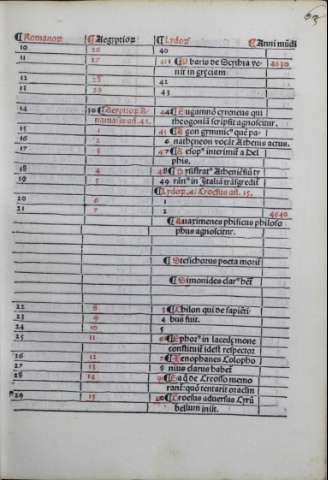 ¶Romanoꝝ ¶Aegyptioꝝ ¶Lydoꝝ ¶Anni mūdi
10 26 40
11 27 41 baris de Scythia ve 4630
nit in greciam
12 28 42
13 29 43
14 30 44 Eugamnō cyreneus qui
theogoniā scripsit agnoscitur.
15 1 45 Agon gymnicꝰ quē pa
16 2 natheneon vocāt Athenis actus.
17 3 47 Esopꝰ interimit a Del
phis.
18 4 48 Pisistratꝰ Atheniēsiū ty
19 5 49 rānꝰ in Italiā trāsgredit
¶Lydoꝝ. Croesus an. 15.
20 6 1
21 7 2 4640
¶Anaximenes phisicus philoso
phus agnoscitur.
¶Stesichorus poeta morit
¶Simonides clarꝰ het
22 8 3 ¶Chilon qui de sapiēti
23 9 4 bus fuit.
24 10 5
25 11 6 Ephorꝰ in lacedemone
constituit idest respector
26 12 7 Xenophanes Colopho
27 13 8 nius clarus habet
28 14 9 de Croeso memo
rant: quō tentarit oraclm
29 15 10 Croesus adversus Cyrū
bellum inīt.